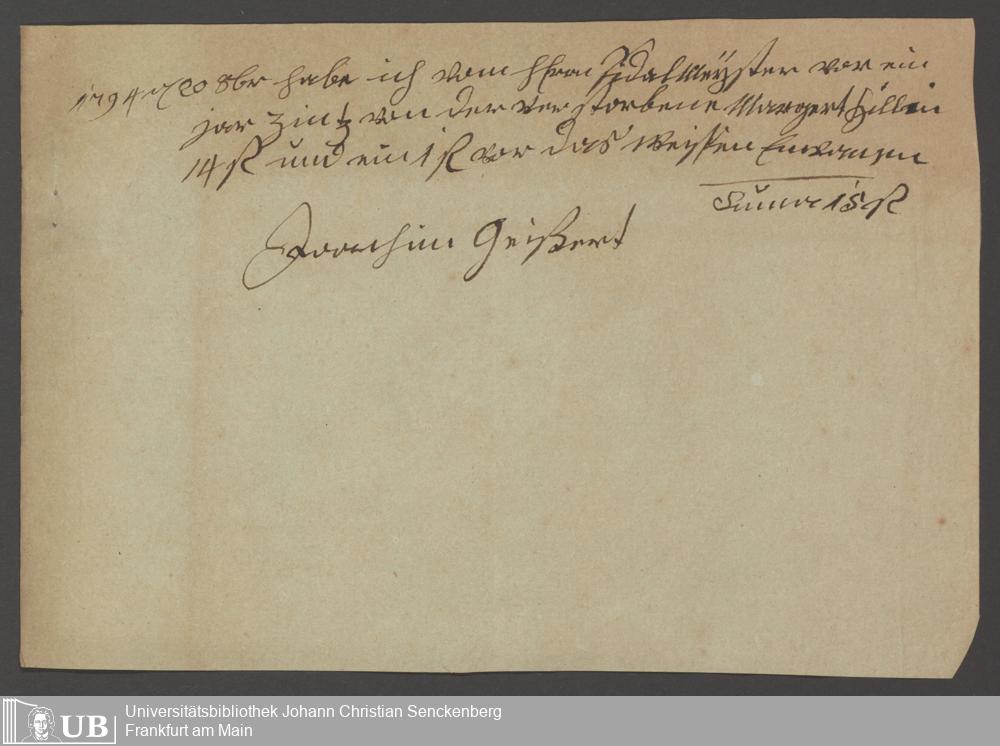 1794 d 20 8br habe ich vom Hern Sidalmeÿster vor ein
jar Zintz von der verstorbene Margert Hillin
14 fl und ein 1 fl vor das weissen
Suma 15 fl
Joachim Geißert
UB
Universitätsbibliothek Johann Christian Senckenberg
Frankfurt am Main